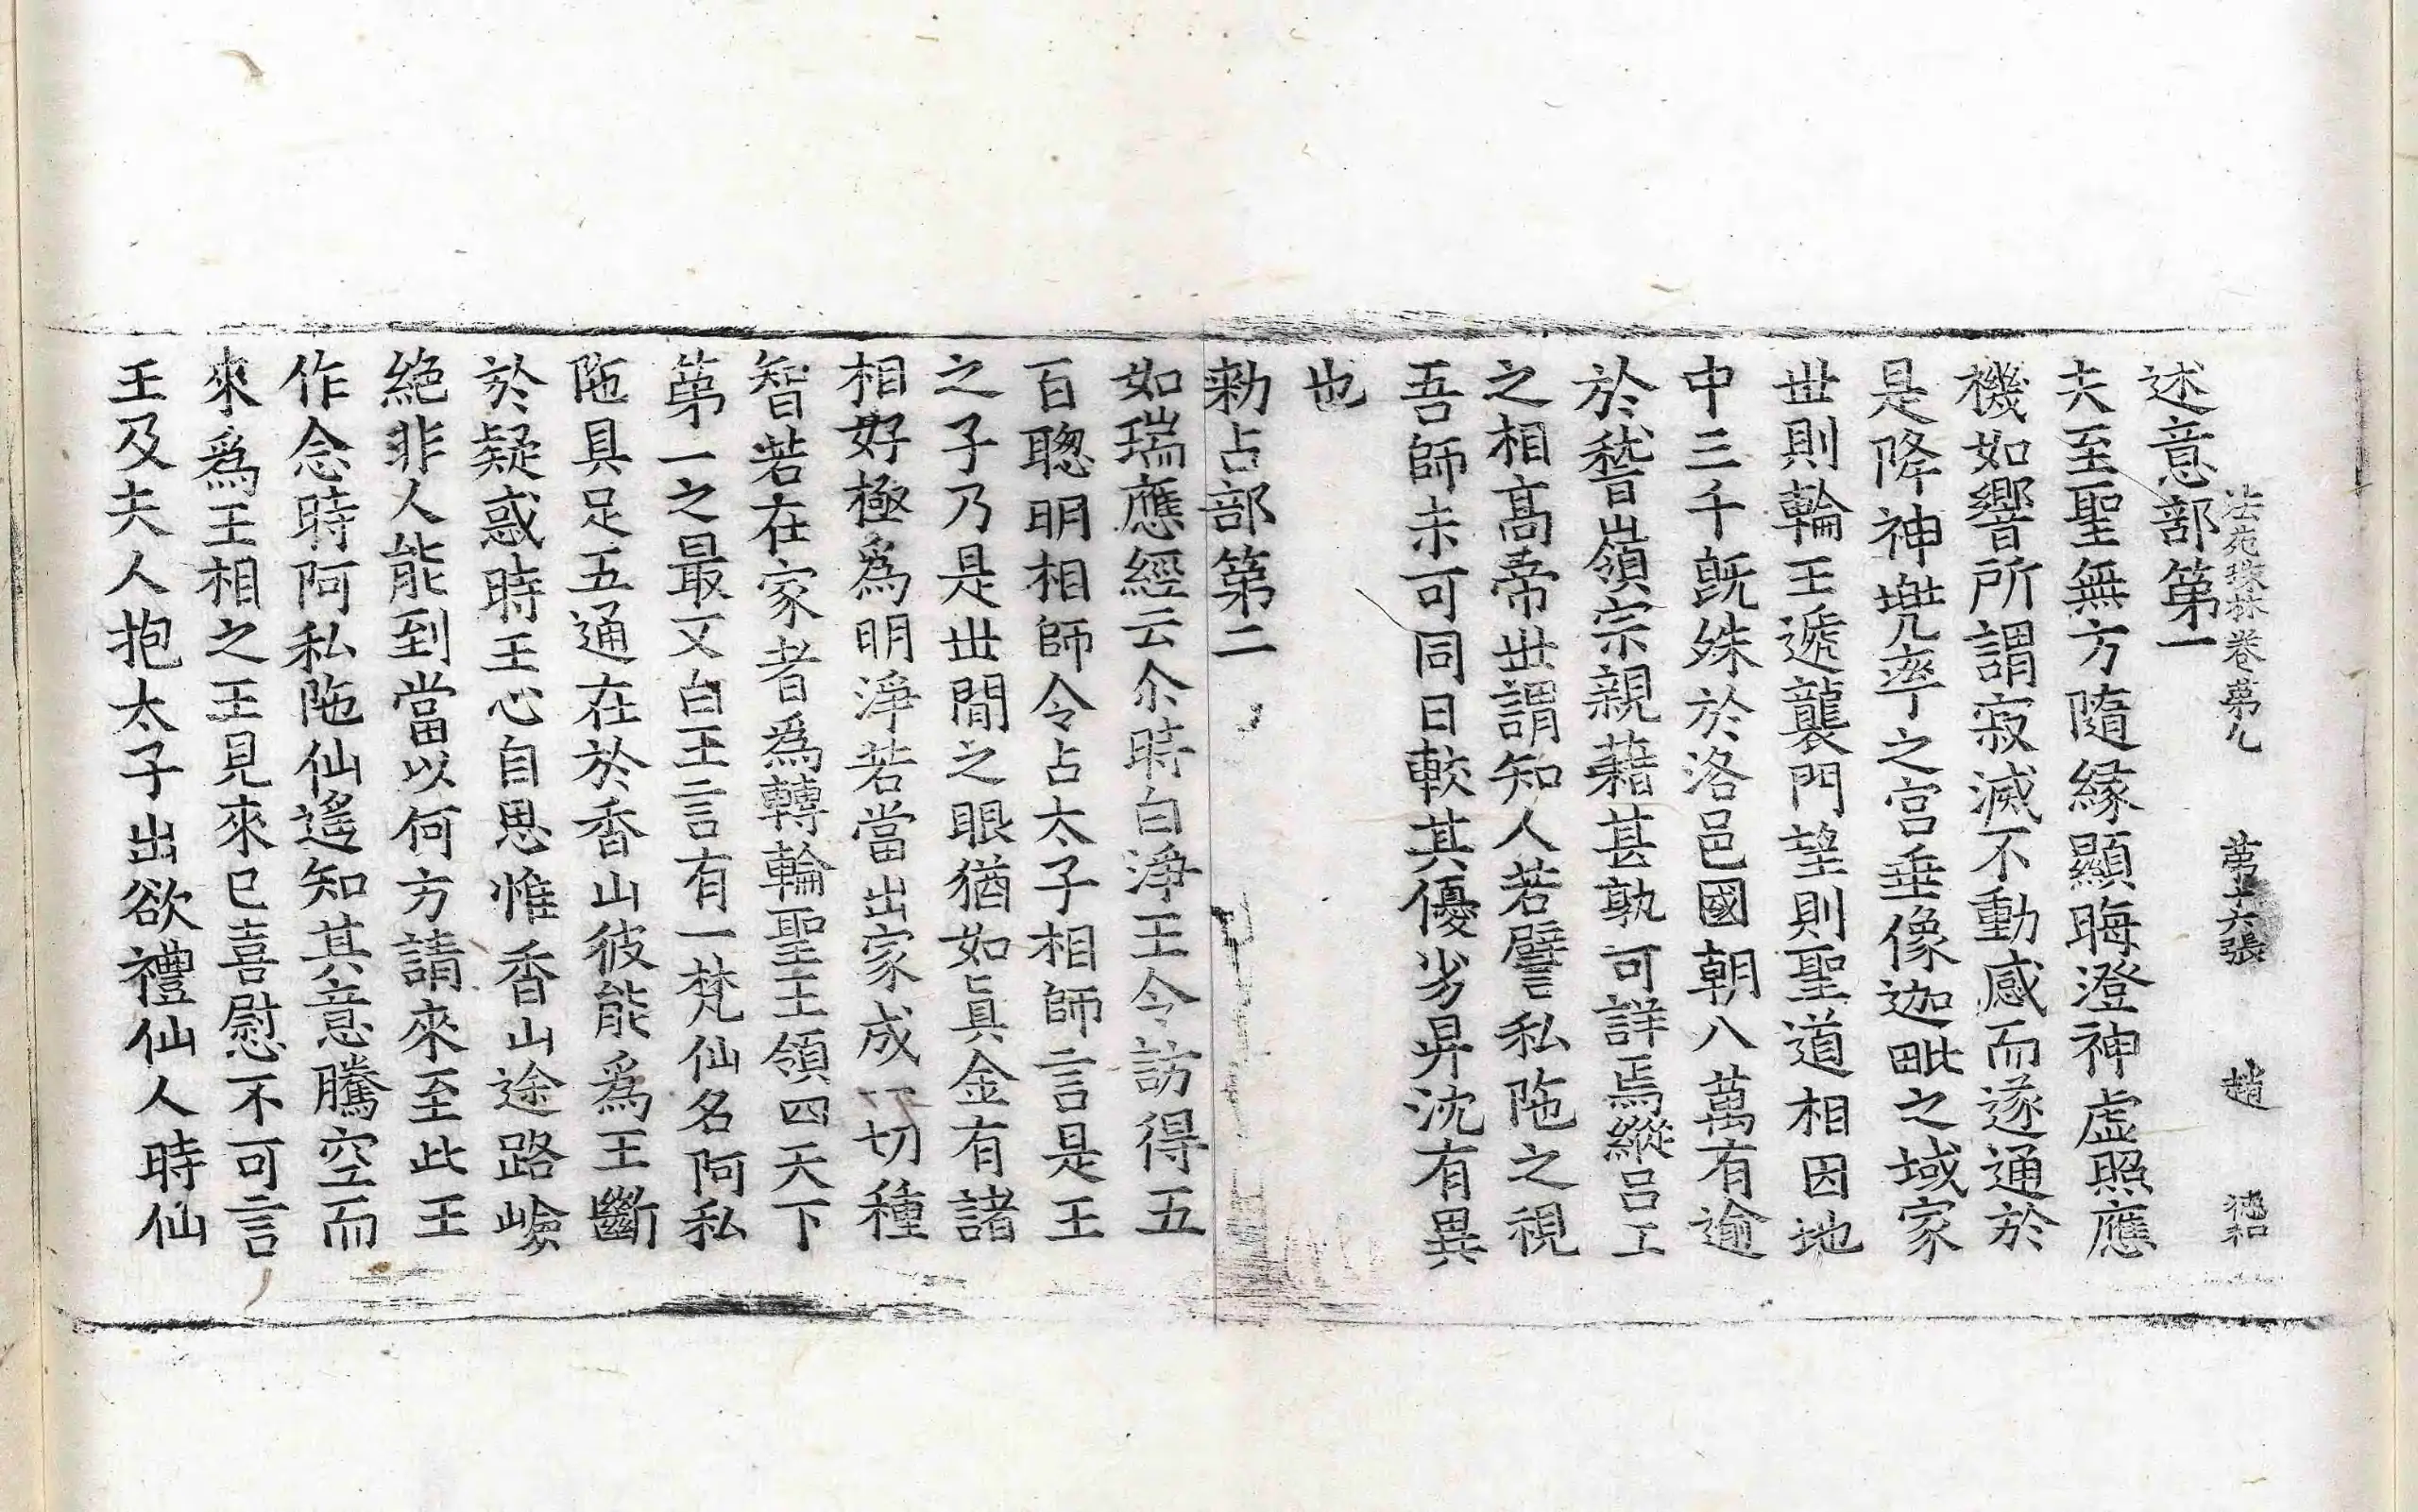 法苑珠林卷第九 第十六張 趙 德和
述意部第一
夫至聖無方隨緣顯晦澄神虛照應
機如響所謂寂滅不動感而遂通於
是降神兠率之宮垂像迦毗之域家
世則輪王遞襲門望則聖道相因地
中三千旣殊於洛邑國朝八萬有逾
於嵇嶺宗親藉甚孰可詳焉縱呂工
之相髙帝世謂知人若譬私陁之視
吾師未可同日較其優劣昇沈有異
也
勑占部第二
如瑞應經云尒時白淨王令訪得五
百聦明相師令占太子相師言是王
之子乃是世間之眼猶如眞金有諸
相好極爲明淨若當出家成一切種
智若在家者爲轉輪聖王領四天下
第一之最又白王言有一梵仙名阿私
陁具足五通在於香山彼能爲王斷
於疑惑時王心自思惟香山途路嶮
絶非人能到當以何方請來至此王
作念時阿私陁仙遙知其意騰空而
來爲王相之王見來已喜慰不可言
王及夫人抱太子出欲禮仙人時仙